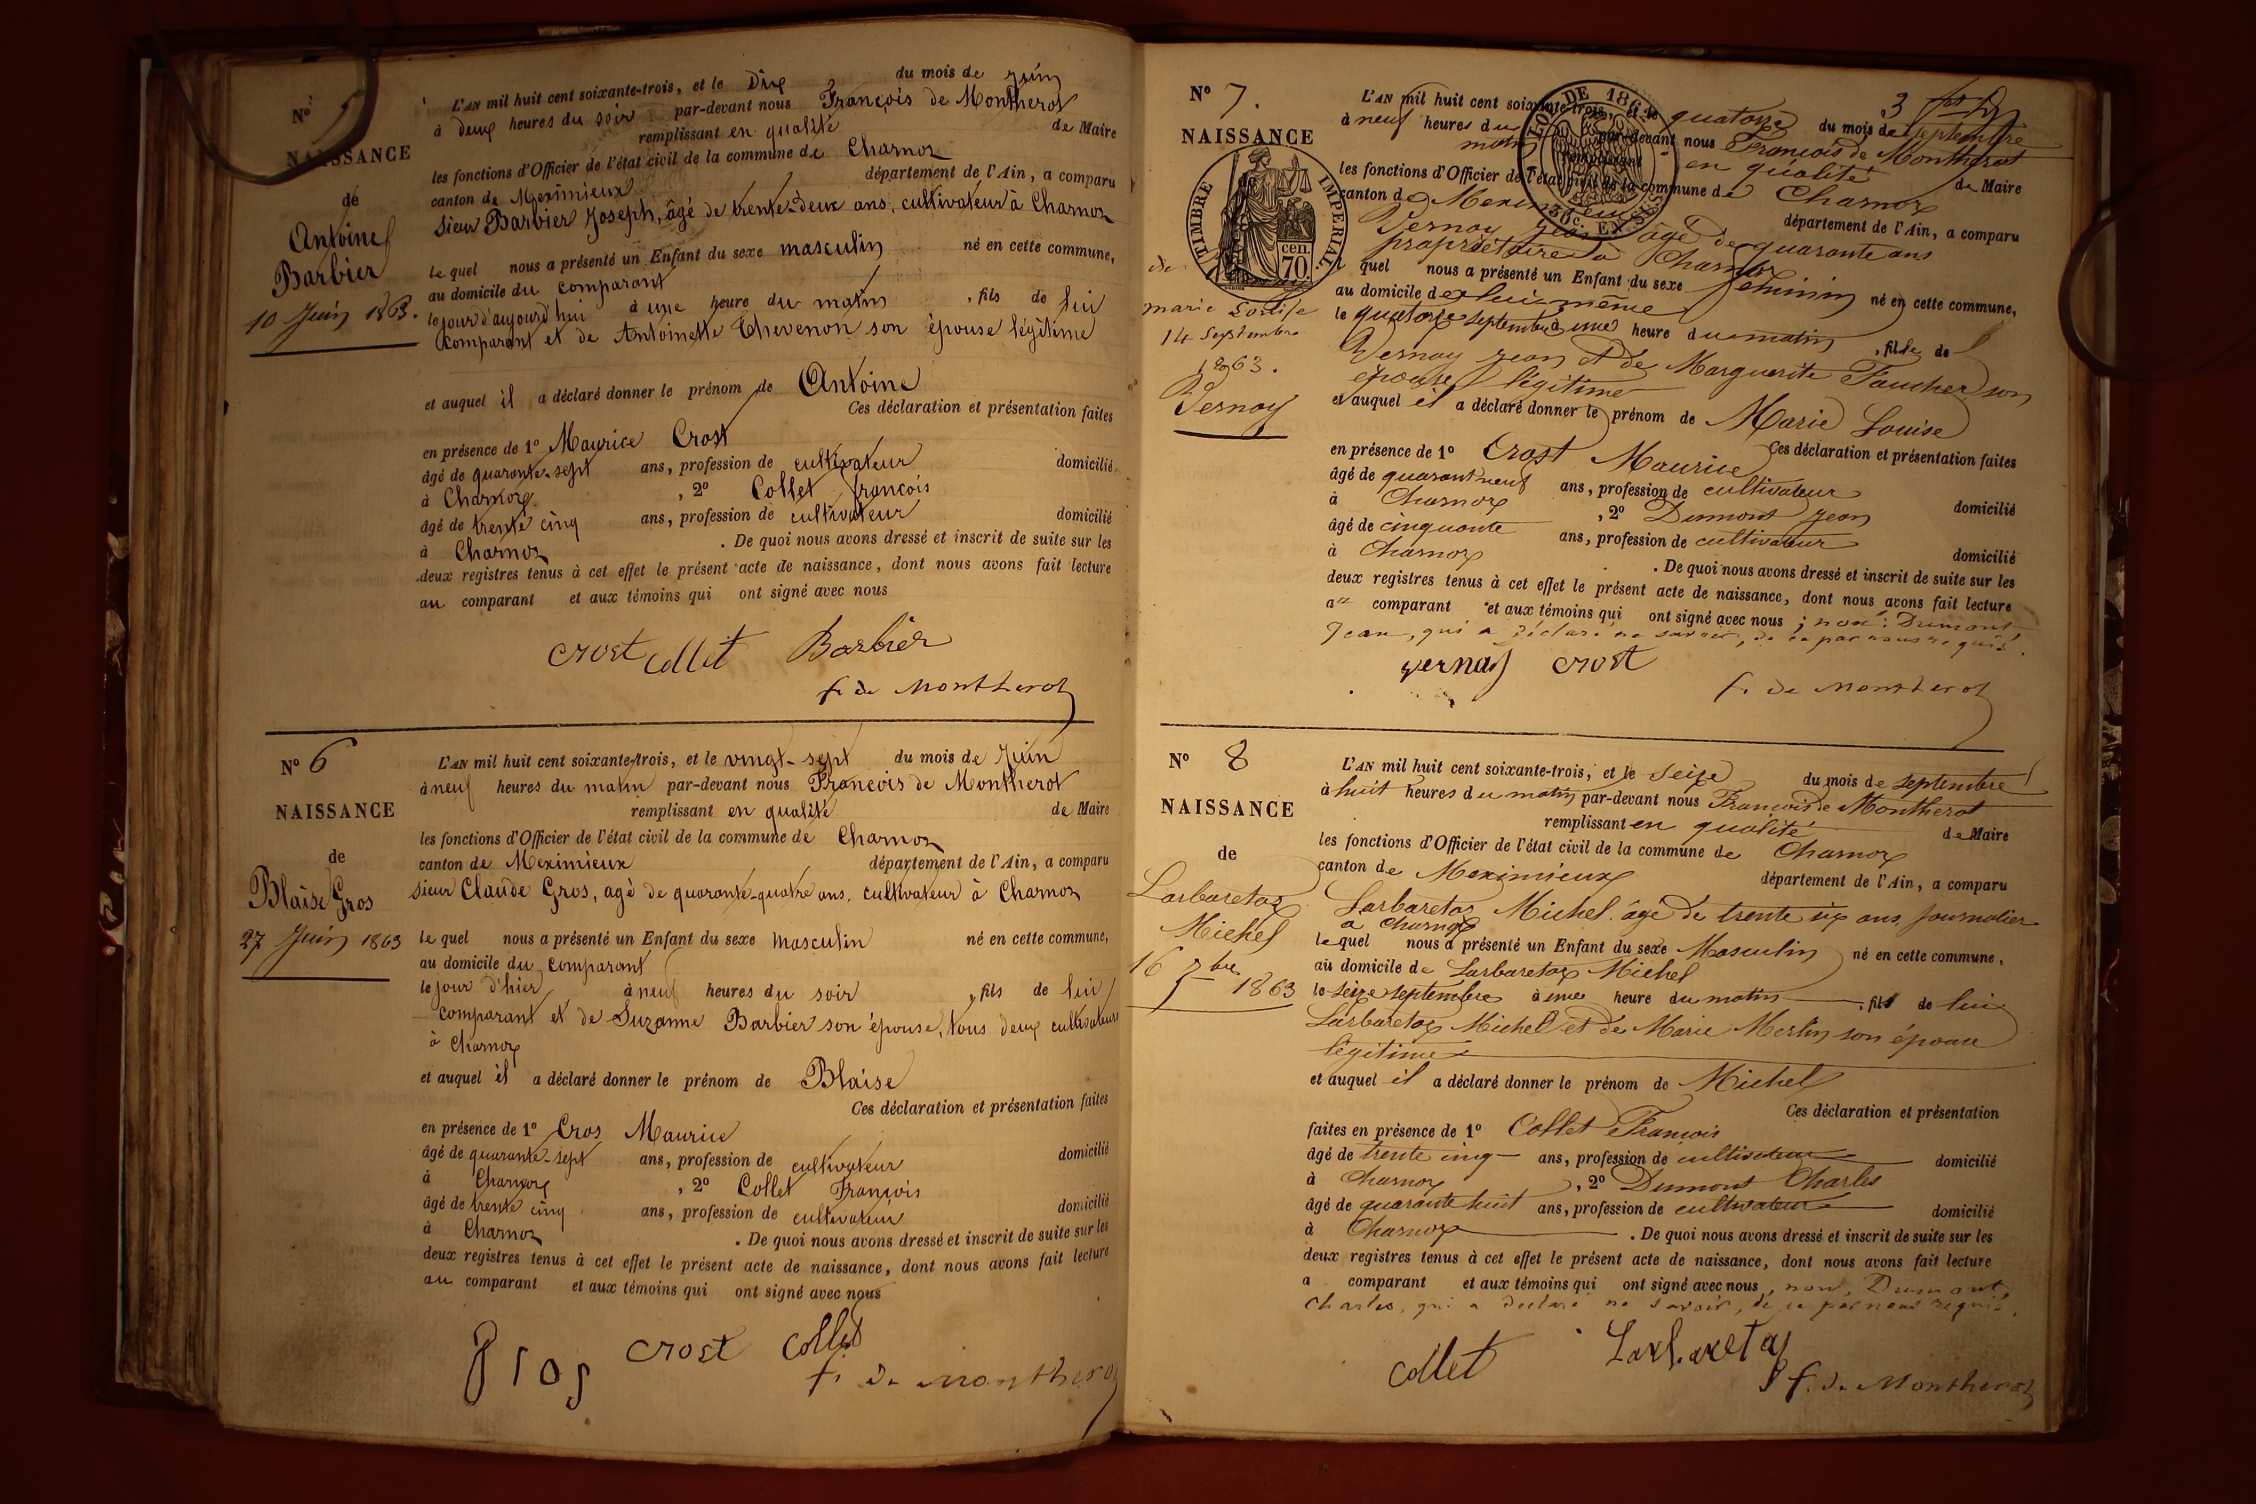 N° 5
NAISSANCE
de
Antoine
Barbier
10 Juin 1863.
L'AN mil huit cent soixante-trois, et le Dix du mois de Juin
à deux heures du soir par-devant nous François de Montherot
remplissant en qualité de Maire
les fonctions d'Officier de l'état civil de la commune de Charnoz
canton de Meximieux département de l'Ain, a comparu
Sieur Barbier Joseph, âgé de trente-deux ans, cultivateur à Charnoz
le quel nous a présenté un Enfant du sexe masculin né en cette commune,
au domicile du comparant
le jour d'aujourd'hui à une heure du matin , fils de lui
comparant et de Antoinette Thevenon son épouse légitime
et auquel il a déclaré donner le prénom de Antoine
Ces déclaration et présentation faites
en présence de 1° Maurice Crost
âgé de quarante-sept ans, profession de cultivateur domicilié
à Charnoz , 2° Collet françois
âgé de trente cinq ans, profession de cultivateur domicilié
à Charnoz . De quoi nous avons dressé et inscrit de suite sur les
deux registres tenus à cet effet le présent acte de naissance, dont nous avons fait lecture
au comparant et aux témoins qui ont signé avec nous
crost collet Barbier
f. de Montherot
N° 6
NAISSANCE
de
Blaise Gros
27 Juin 1863
L'AN mil huit cent soixante-trois, et le vingt-sept du mois de Juin
à neuf heures du matin par-devant nous François de Montherot
remplissant en qualité de Maire
les fonctions d'Officier de l'état civil de la commune de Charnoz
canton de Meximieux département de l'Ain, a comparu
sieur Claude Gros, agé de quarante-quatre ans, cultivateur à Charnoz
le quel nous a présenté un Enfant du sexe masculin né en cette commune,
au domicile du comparant
le jour d'hier à neuf heures du soir , fils de lui
comparant et de Suzanne Barbier son épouse, tous deux cultivateurs
à Charnoz
et auquel il a déclaré donner le prénom de Blaise
Ces déclaration et présentation faites
en présence de 1° Cros Maurice
âgé de quarante-sept ans, profession de cultivateur domicilié
à Charnoz , 2° Collet François
âgé de trente cinq ans, profession de cultivateur domicilié
à Charnoz . De quoi nous avons dressé et inscrit de suite sur les
deux registres tenus à cet effet le présent acte de naissance, dont nous avons fait lecture
au comparant et aux témoins qui ont signé avec nous
gros crost collet
f. de Montherot
N° 7.
NAISSANCE
TIMBRE IMPERIAL
cen
70.
de
marie Louise
14 Septembre
1863.
Vernay
LOI DE 1862
30c. EN SUS
3
L'AN mil huit cent soixante-trois, et le quatorze du mois de septembre
à neuf heures du matin par-devant nous François de Montherot
remplissant en qualité de Maire
les fonctions d'Officier de l'état civil de la commune de Charnoz
canton de Meximieux département de l'Ain, a comparu
Vernay Jean âgé de quarante ans
propriétaire à Charnoz
quel nous a présenté un Enfant du sexe féminin né en cette commune,
au domicile de lui même
le quatorze septembre à une heure du matin , fille de
Vernay Jean et de Marguerite Faucher son
épouse légitime
et auquel il a déclaré donner le prénom de Marie Louise
Ces déclaration et présentation faites
en présence de 1° Crost Maurice
âgé de quarant neuf ans, profession de cultivateur domicilié
à Charnoz , 2° Dumont Jean
âgé de cinquante ans, profession de cultivateur domicilié
à Charnoz . De quoi nous avons dressé et inscrit de suite sur les
deux registres tenus à cet effet le présent acte de naissance, dont nous avons fait lecture
au comparant et aux témoins qui ont signé avec nous ; non : Dumont
Jean, qui a déclaré ne savoir, de ce par nous requis.
vernay crost
f. de Montherot
N° 8
NAISSANCE
de
Larbaretaz
Michel
16 7bre 1863
L'AN mil huit cent soixante-trois, et le seize du mois de septembre
à huit heures du matin par-devant nous François de Montherot
remplissant en qualité de Maire
les fonctions d'Officier de l'état civil de la commune de Charnoz
canton de Meximieux département de l'Ain, a comparu
Larbaretaz Michel âgé de trente six ans Journalier
a Charnoz
le quel nous a présenté un Enfant du sexe Masculin né en cette commune,
au domicile de Larbaretaz Michel
le seize septembre à une heure du matin , fils de lui
Larbaretaz Michel et de Marie Merlin son épouse
légitime
et auquel il a déclaré donner le prénom de Michel
Ces déclaration et présentation
faites en présence de 1° Collet François
âgé de trente cinq ans, profession de cultivateur domicilié
à Charnoz , 2° Dumont Charles
âgé de quarante huit ans, profession de cultivateur domicilié
à Charnoz . De quoi nous avons dressé et inscrit de suite sur les
deux registres tenus à cet effet le présent acte de naissance, dont nous avons fait lecture
a comparant et aux témoins qui ont signé avec nous, non, Dumont,
Charles, qui a déclaré ne savoir, de ce par nous requis.
collet Larbaretaz
f. de Montherot